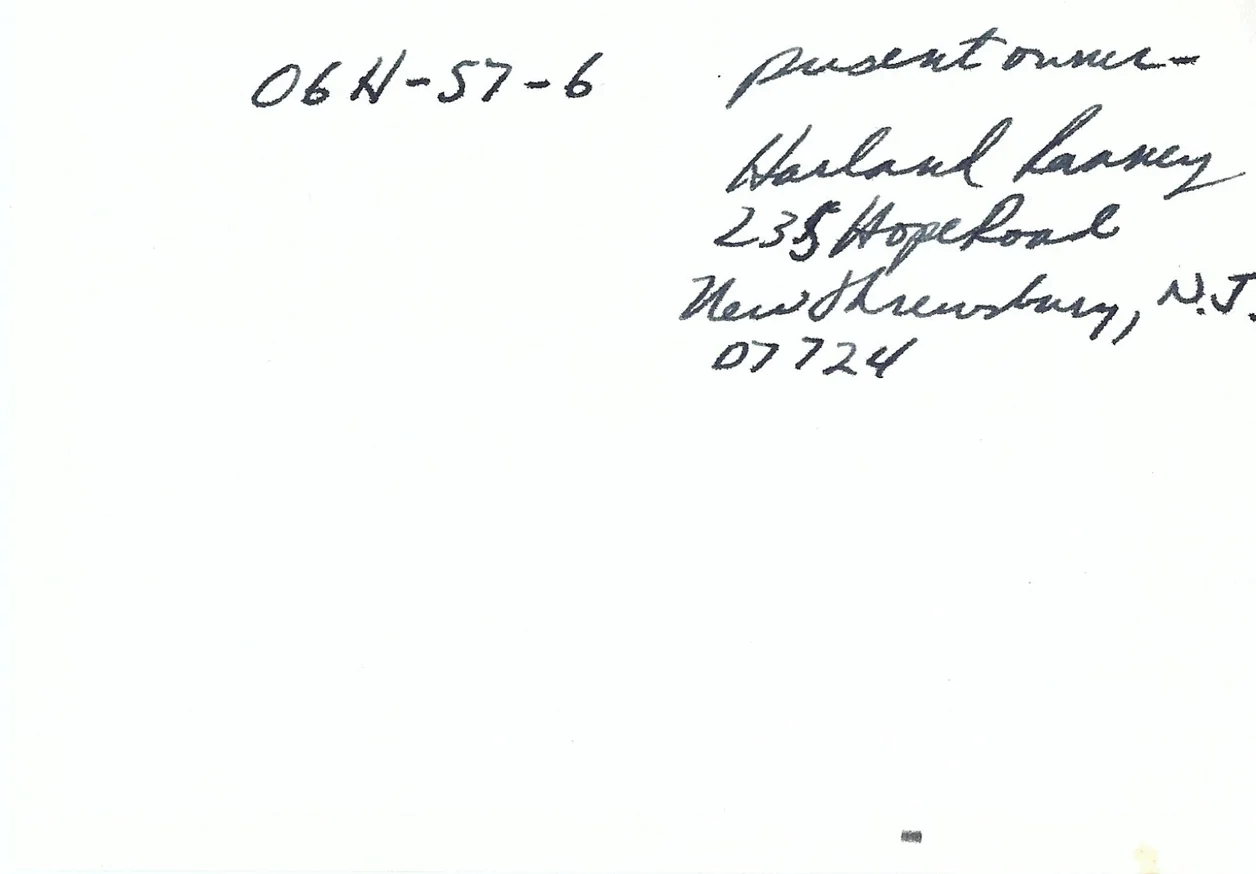 06H-57-6
present owner-
Harland Ranney
235 Hope Road
New Shrewsbury, N.J.
07724